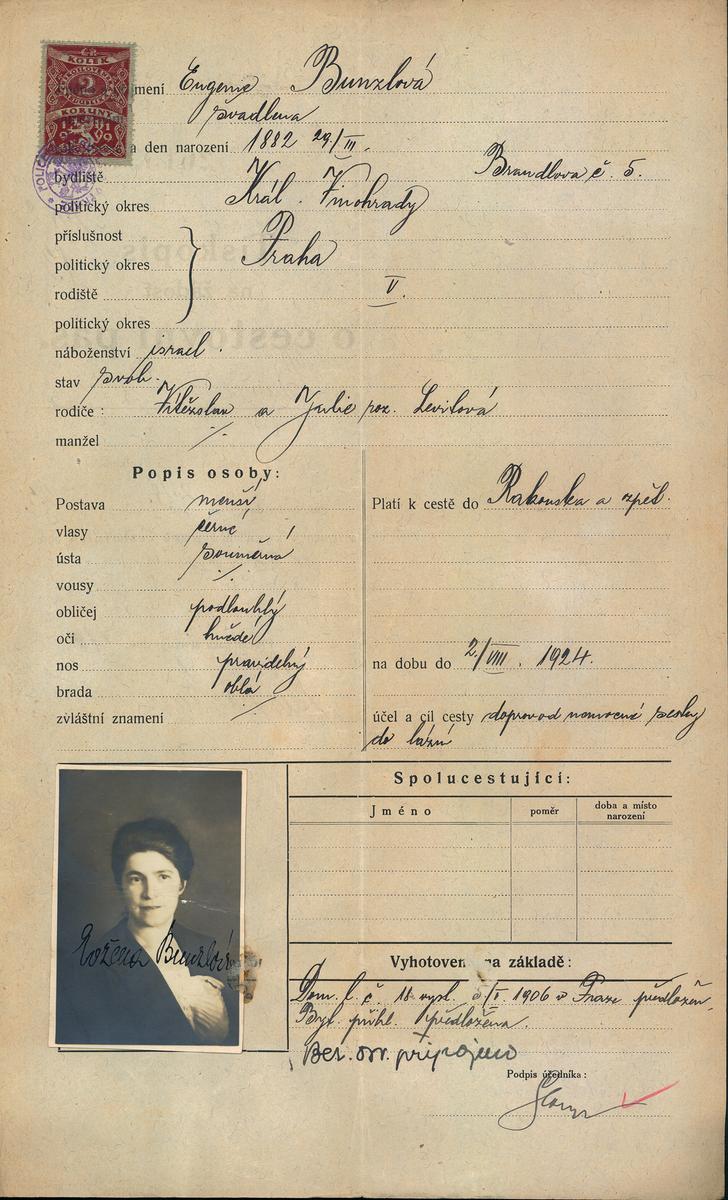 ČR.
KOLEK
2
KORUNY
jmení Eugenie Bunzlová
švadlena
a den narození 1882 29/III.
bydliště Brandlova č. 5.
politický okres Král. Vinohrady
příslušnost
politický okres Praha
rodiště V.
politický okres
náboženství israel.
stav svob.
rodiče: Vítězslav a Julie roz. Levitová
manžel ./.
Popis osoby:
Postava menší
vlasy černé
ústa souměrná
vousy ./.
obličej podlouhlý
oči hnědé
nos pravidelný
brada oblá
zvláštní znamení ./.
Platí k cestě do Rakouska a zpět.
na dobu do 2/VIII. 1924.
účel a cíl cesty doprovod nemocné sestry
do lázní
Spolucestující:
Jméno poměr doba a místo
narození
Bunzlová
Vyhotoven na základě:
Dom. l. č. vyst. 1906 v Praze předložen.
Byt. přihl. předložena.
Ber. osv. připojeno
Podpis úředníka: